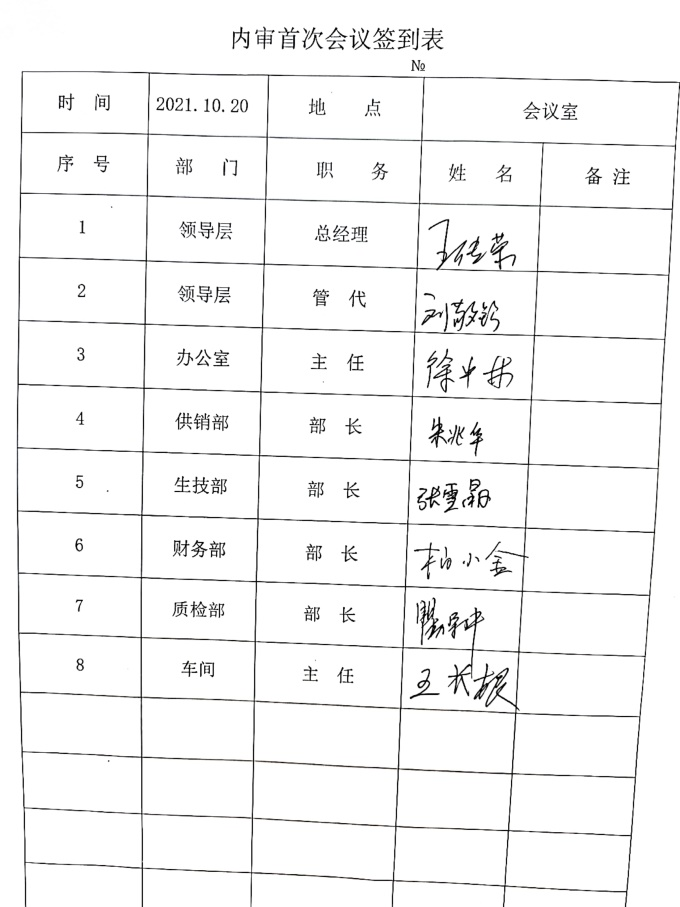 内审首次会议签到表
№
时 间 2021.10.20 地 点 会议室
序 号 部 门 职 务 姓 名 备 注
1 领导层 总经理
2 领导层 管 代
3 办公室 主 任 徐中林
4 供销部 部 长 朱兆华
5 生技部 部 长 张雪晶
6 财务部 部 长 柏小金
7 质检部 部 长
8 车间 主 任 王长根